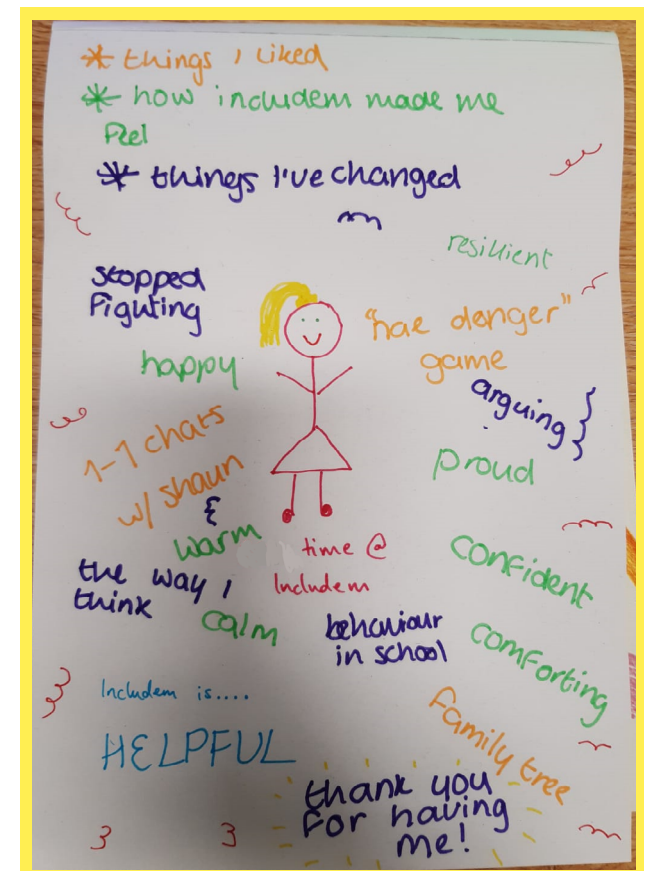 * things I liked
* how includem made me
feel
* things I've changed
resilient
stopped
fighting
"nae danger"
game
happy
arguing
1-1 chats
w/ shaun
proud
warm
time @
Includem
confident
the way I
think
calm
behaviour
in school
comforting
Includem is....
HELPFUL
family tree
thank you
for having
me!